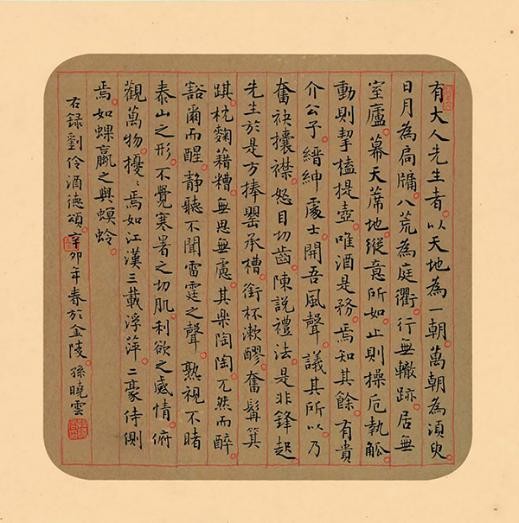 有大人先生者以天地為一朝萬朝為須臾
日月為扃牖八荒為庭衢行無轍跡居無
室廬幕天席地縱意所如止則操卮執觚
動則挈榼提壺唯酒是務焉知其餘有貴
介公子縉紳處士聞吾風聲議其所以乃
奮袂攘襟怒目切齒陳說禮法是非鋒起
先生於是方捧罌承槽銜杯漱醪奮髯箕
踑枕麴藉糟無思無慮其樂陶陶兀然而醉
豁爾而醒靜聽不聞雷霆之聲熟視不睹
泰山之形不覺寒暑之切肌利欲之感情俯
觀萬物擾〻焉如江漢三載浮萍二豪侍側
焉如蜾蠃之與螟蛉
右錄劉伶酒德頌辛卯年春於金陵孫曉雲